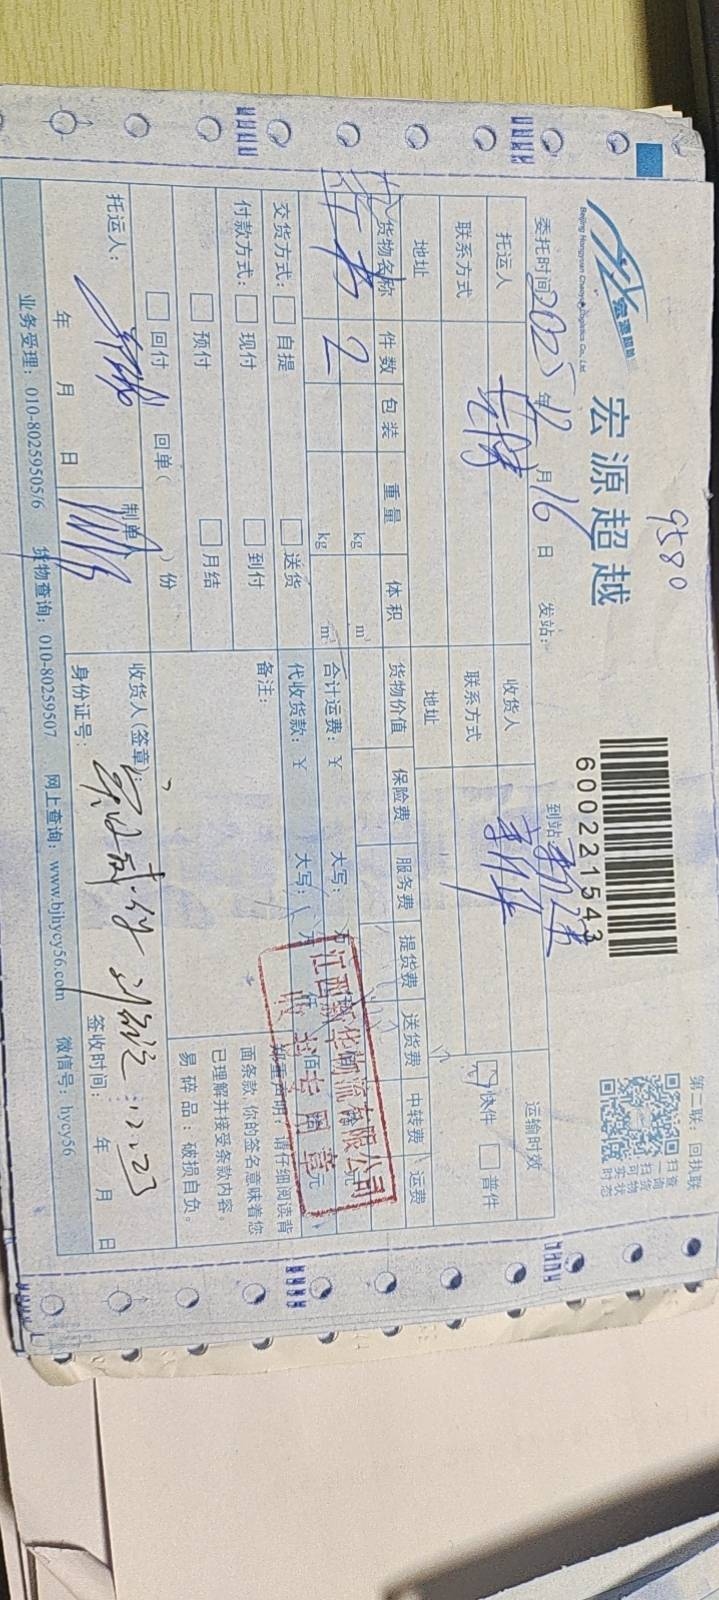 9580
宏源国际
Beijing Hongyuan Chaoyue Logistics Co., Ltd.
宏源超越
600221543
第二联：回执联
扫查
描询
可货
扫物
实状
时态
委托时间 2025年12月16日 发站： 到站
托运人 收货人 新华 运输时效
联系方式 联系方式 快件 普件
地址 地址
货物名称 件数 包装 重量 体积 货物价值 保险费 服务费 提货费 送货费 中转费 运费
kg m³
2 kg m³ 合计运费：￥ 大写： 万
交货方式： 自提 送货 代收货款：￥ 大写： 万 仟 佰 元
江西新华物流有限公司
收货专用章
付款方式： 现付 到付 备注：
预付 月结
回付 回单（ ）份
郑重声明：请仔细阅读背
面条款，你的签名意味着您
已理解并接受条款内容。
易碎品：破损自负。
托运人： 制单 收货人(签章)：
年 月 日 身份证号： 签收时间： 年 月 日
12.23
业务受理：010-80259505/6 货物查询：010-80259507 网上查询：www.bjhycy56.com 微信号：hycy56